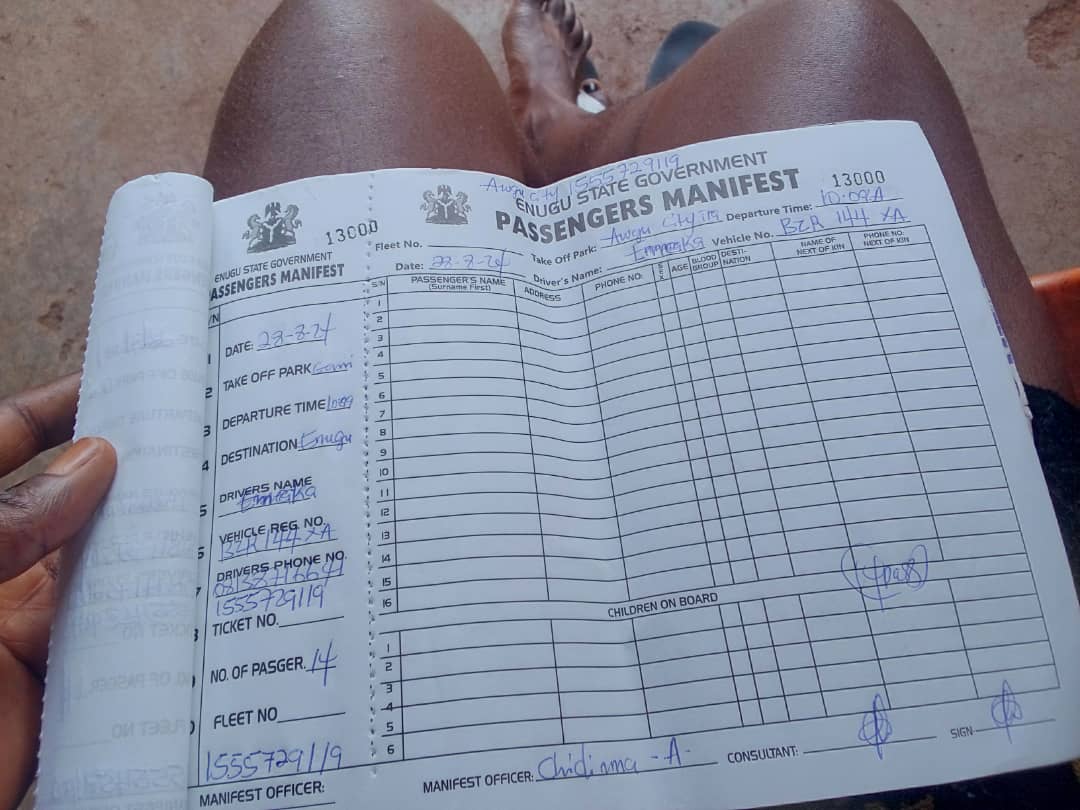 13000
ENUGU STATE GOVERNMENT
PASSENGERS MANIFEST
DATE: 28-8-24
TAKE OFF PARK
DEPARTURE TIME
DESTINATION Enugu
DRIVERS NAME
Emmeka
VEHICLE REG. NO.
BZR 144 XA
DRIVERS PHONE NO.
1555729119
TICKET NO.
NO. OF PASGER. 14
FLEET NO
1555729119
MANIFEST OFFICER:
Awgu city 1555729119
ENUGU STATE GOVERNMENT
PASSENGERS MANIFEST
13000
Fleet No.
Take Off Park: Awgu City
Departure Time: 10:09A
Date: 28-8-24
Driver's Name: Emmeka
Vehicle No. BZR 144 XA
S/N PASSENGER'S NAME (Surname First) ADDRESS PHONE NO. SEX AGE BLOOD GROUP DESTI-NATION NAME OF NEXT OF KIN PHONE NO. NEXT OF KIN
1
2
3
4
5
6
7
8
9
10
11
12
13
14
15
16
CHILDREN ON BOARD
1
2
3
4
5
6
MANIFEST OFFICER: Chidinma - A -
CONSULTANT:
SIGN